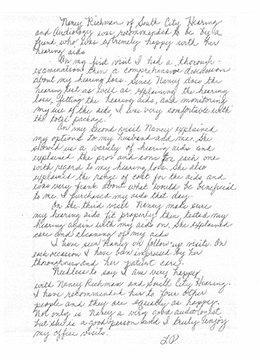 Nancy Richman of South City Hearing
and Audiology was recommended to me by a
friend who was extremely happy with her
hearing aids.
On my first visit I had a thorough
examination then a comprehensive discussion
about my hearing loss. Since Nancy does the
hearing test as well as explaining the hearing
loss, fitting the hearing aids, and monitoring
my use of the aids I was very comfortable with
the total package.
On my second visit Nancy explained
my options to my husband and me. She
showed us a variety of hearing aids and
explained the pros and cons for each one
with regard to my hearing loss. She also
explained the range of cost for the aids, and
was very frank about what would be beneficial
to me. I purchased my aids that day.
On the third visit Nancy made sure
my hearing aids fit properly then tested my
hearing again with my aids on. She explained
care and cleaning of my aids.
I have seen Nancy on follow up visits. On
each occasion I have been impressed by her
thoroughness and her patient care.
Needless to say I am very happy
with Nancy Richman and South City Hearing.
I have recommended her to four other
people and they are equally as happy.
Not only is Nancy a very good audiologist
but she is a good person and I truly enjoy
my office visits.